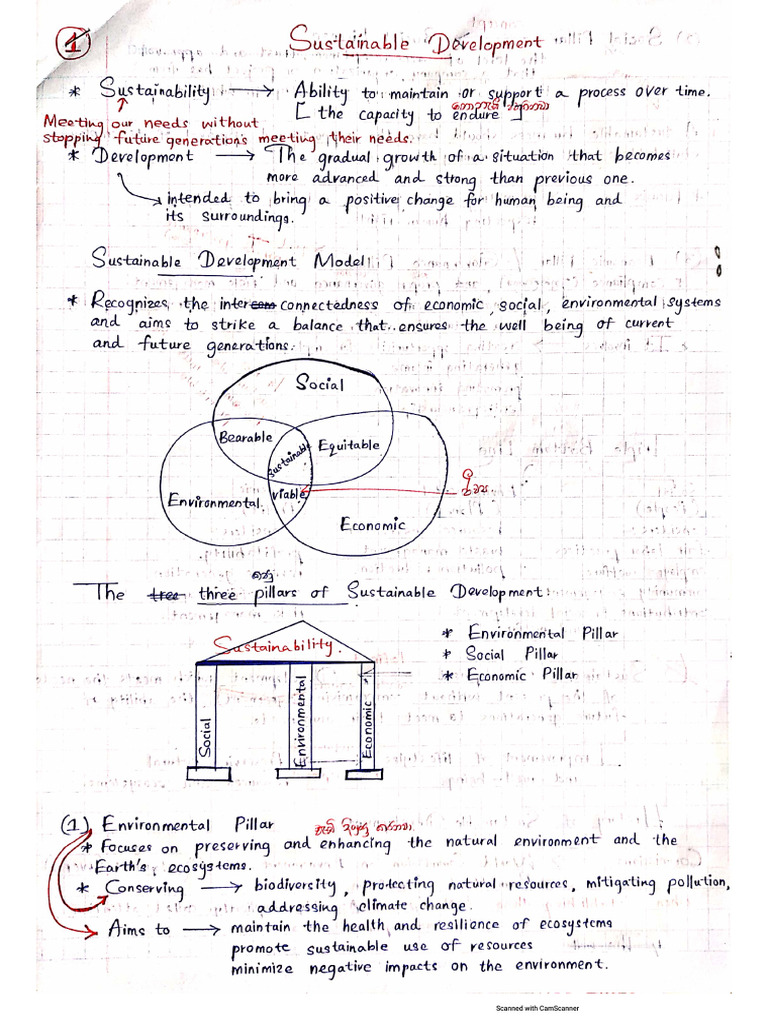 1
Sustainable Development
* Sustainability → Ability to maintain or support a process over time.
[ the capacity to endure ]
Meeting our needs without
stopping future generations meeting their needs.
* Development → The gradual growth of a situation that becomes
more advanced and strong than previous one.
intended to bring a positive change for human being and
its surroundings.
Sustainable Development Model
* Recognizes the interconnectedness of economic, social, environmental systems
and aims to strike a balance that ensures the well being of current
and future generations.
Social
Bearable
Equitable
Sustainable
Environmental
viable
Economic
The three pillars of Sustainable Development:
Sustainability
* Environmental Pillar
* Social Pillar
* Economic Pillar
Social
Environmental
Economic
(1) Environmental Pillar
* Focuses on preserving and enhancing the natural environment and the
Earth's ecosystems.
* Conserving → biodiversity, protecting natural resources, mitigating pollution,
addressing climate change.
Aims to → maintain the health and resilience of ecosystems
promote sustainable use of resources
minimize negative impacts on the environment.
Scanned with CamScanner